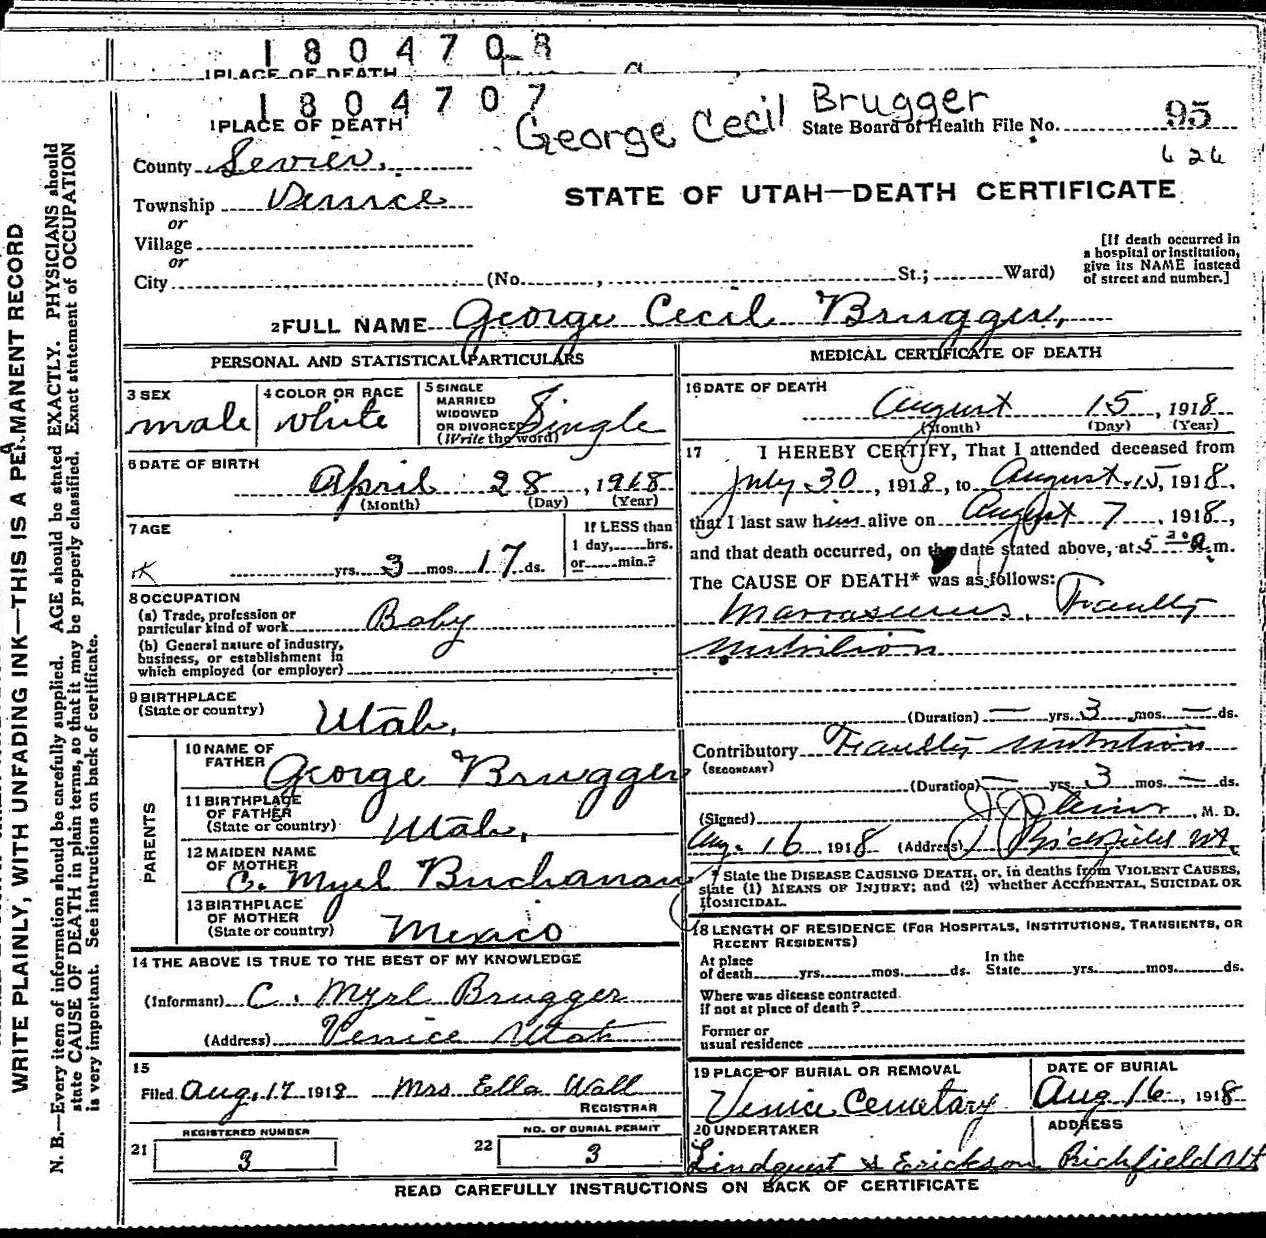 1 8 0 4 7 0 8
1 PLACE OF DEATH
1 8 0 4 7 0 7
1 PLACE OF DEATH
George Cecil Brugger
State Board of Health File No. 95
626
County Sevier,
Township Venice
or
Village
or
City (No. , St.; Ward)
STATE OF UTAH—DEATH CERTIFICATE
[If death occurred in
a hospital or institution,
give its NAME instead
of street and number.]
2 FULL NAME George Cecil Brugger,
PERSONAL AND STATISTICAL PARTICULARS
3 SEX
male
4 COLOR OR RACE
white
5 SINGLE
MARRIED
WIDOWED
OR DIVORCED
(Write the word)
Single
6 DATE OF BIRTH
April 28, 1918
(Month) (Day) (Year)
7 AGE
yrs. 3 mos. 17 ds.
If LESS than
1 day, hrs.
or min.?
8 OCCUPATION
(a) Trade, profession or
particular kind of work Baby
(b) General nature of industry,
business, or establishment in
which employed (or employer)
9 BIRTHPLACE
(State or country)
Utah,
PARENTS
10 NAME OF
FATHER
George Brugger
11 BIRTHPLACE
OF FATHER
(State or country)
Utah,
12 MAIDEN NAME
OF MOTHER
C. Myrl Buchanan
13 BIRTHPLACE
OF MOTHER
(State or country)
Mexico
14 THE ABOVE IS TRUE TO THE BEST OF MY KNOWLEDGE
(Informant) C. Myrl Brugger
(Address) Venice Utah
15
Filed Aug. 17 1918 Mrs Ella Wall
REGISTRAR
21 REGISTERED NUMBER
3
22 NO. OF BURIAL PERMIT
3
MEDICAL CERTIFICATE OF DEATH
16 DATE OF DEATH
August 15, 1918
(Month) (Day) (Year)
17 I HEREBY CERTIFY, That I attended deceased from
July 30, 1918, to August 15, 1918,
that I last saw him alive on August 7, 1918,
and that death occurred, on the date stated above, at 5 30 a.m.
The CAUSE OF DEATH* was as follows:
Marrasmus, Faulty
nutrition
(Duration) — yrs. 3 mos. — ds.
Contributory Faulty nutrition
(SECONDARY)
(Duration) — yrs. 3 mos. — ds.
(Signed) M. D.
Aug. 16 1918 (Address) Richfield Ut.
* State the DISEASE CAUSING DEATH, or, in deaths from VIOLENT CAUSES,
state (1) MEANS OF INJURY; and (2) whether ACCIDENTAL, SUICIDAL OR
HOMICIDAL.
18 LENGTH OF RESIDENCE (FOR HOSPITALS, INSTITUTIONS, TRANSIENTS, OR
RECENT RESIDENTS)
At place
of death yrs. mos. ds.
In the
State yrs. mos. ds.
Where was disease contracted
if not at place of death?
Former or
usual residence
19 PLACE OF BURIAL OR REMOVAL
Venice Cemetary
DATE OF BURIAL
Aug 16, 1918
20 UNDERTAKER
Lindquist & Erickson
ADDRESS
Richfield Ut
READ CAREFULLY INSTRUCTIONS ON BACK OF CERTIFICATE
WRITE PLAINLY, WITH UNFADING INK—THIS IS A PERMANENT RECORD
N. B.—Every item of information should be carefully supplied. AGE should be stated EXACTLY. PHYSICIANS should
state CAUSE OF DEATH in plain terms, so that it may be properly classified. Exact statement of OCCUPATION
is very important. See instructions on back of certificate.